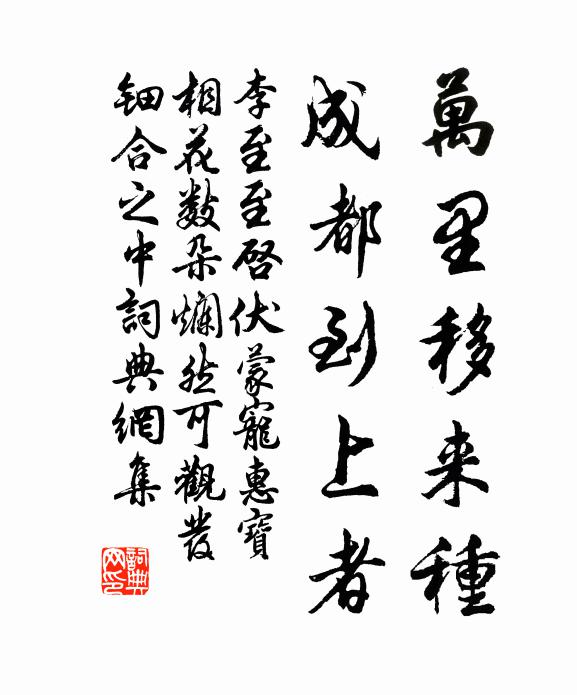 萬里移来種
成都到上者
李至至啓伏蒙寵惠寶
相花数朵爛然可觀發
鈿合之中詞典網集
詞典
网印